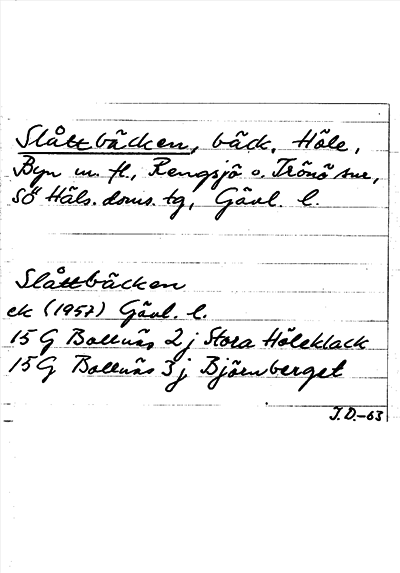 Slåttbäcken, bäck, Höle,
Byn m. fl., Rengsjö o. Trönö snr,
Sö Häls. doms. tg, Gävl. l.
Slåttbäcken
ek (1957) Gävl. l.
15 G Bollnäs 2 j Stora Höleklack
15 G Bollnäs 3 j Björnberget
J.D.-63